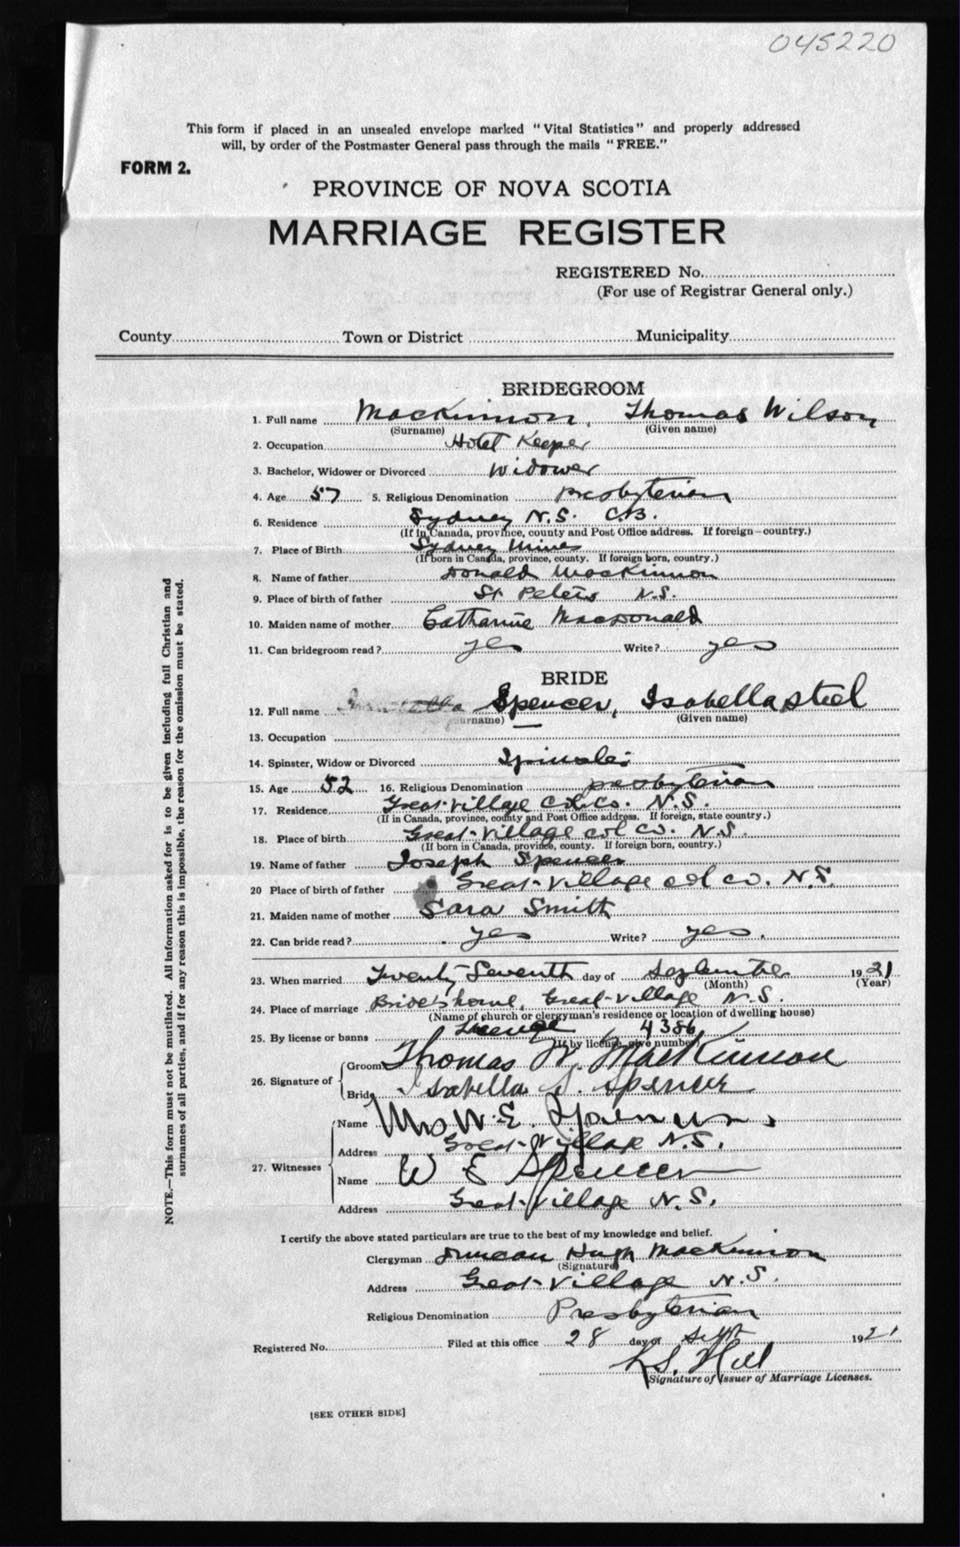 045220
This form if placed in an unsealed envelope marked "Vital Statistics" and properly addressed
will, by order of the Postmaster General pass through the mails "FREE."
FORM 2.
PROVINCE OF NOVA SCOTIA
MARRIAGE REGISTER
REGISTERED No.
(For use of Registrar General only.)
County Town or District Municipality
BRIDEGROOM
1. Full name MacKinnon, Thomas Wilson
(Surname) (Given name)
2. Occupation Hotel Keeper
3. Bachelor, Widower or Divorced Widower
4. Age 57 5. Religious Denomination Presbyterian
6. Residence Sydney N.S. C.B.
(If in Canada, province, county and Post Office address. If foreign—country.)
7. Place of Birth Sydney Mines
(If born in Canada, province, county. If foreign born, country.)
8. Name of father Donald MacKinnon
9. Place of birth of father St Peters N.S.
10. Maiden name of mother Catharine MacDonald
11. Can bridegroom read? yes Write? yes
BRIDE
12. Full name Spencer, Isabella Steel
(Surname) (Given name)
13. Occupation
14. Spinster, Widow or Divorced Spinster
15. Age 52 16. Religious Denomination Presbyterian
17. Residence Great Village Col. Co. N.S.
(If in Canada, province, county and Post Office address. If foreign, state country.)
18. Place of birth Great Village Col Co. N.S.
(If born in Canada, province, county. If foreign born, country.)
19. Name of father Joseph Spencer
20 Place of birth of father Great Village Col Co. N.S.
21. Maiden name of mother Sara Smith
22. Can bride read? yes Write? yes.
23. When married Twenty Seventh day of September 1921
(Month) (Year)
24. Place of marriage Bride's home, Great Village N.S.
(Name of church or clergyman's residence or location of dwelling house)
25. By license or banns License 4386
(If by license, give number)
26. Signature of Groom Thomas W. MacKinnon
Bride Isabella S. Spencer
27. Witnesses Name Mrs W. E. Spencer
Address Great Village N.S.
Name W E Spencer
Address Great Village N.S.
I certify the above stated particulars are true to the best of my knowledge and belief.
Clergyman Duncan Hugh MacKinnon
(Signature)
Address Great Village N.S.
Religious Denomination Presbyterian
Registered No. Filed at this office 28 day of Sept 1921
Hill
Signature of Issuer of Marriage Licenses.
[SEE OTHER SIDE]
NOTE.—This form must not be mutilated. All information asked for is to be given including full Christian and
surnames of all parties, and if for any reason this is impossible, the reason for the omission must be stated.